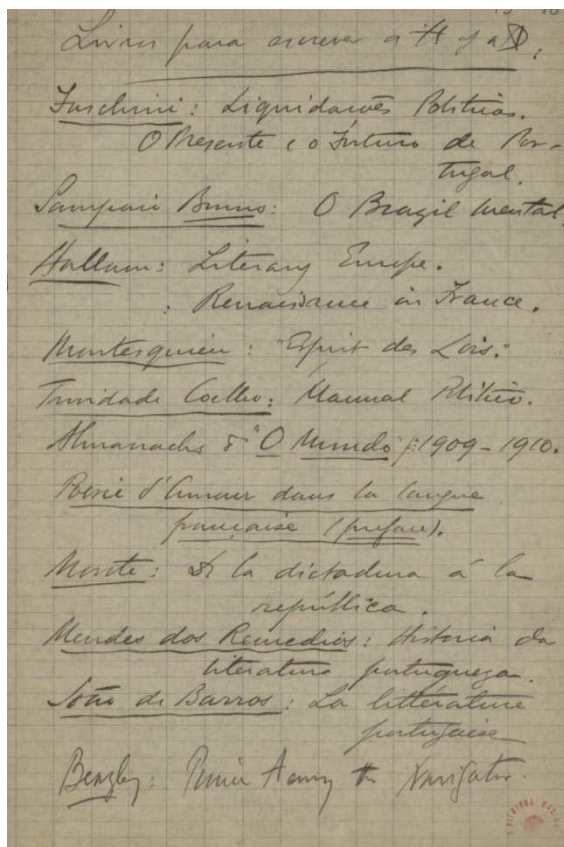 Livros para escrever a H of a D.
Fuschini: Liquidações Politicas.
O Presente e o Futuro de Por-
tugal.
Sampaio Bruno: O Brazil Mental.
Hallam: Literary Europe.
: Renaissance in France.
Montesquieu: "Esprit des Lois."
Trindade Coelho: Manual Politico.
Almanachs d'"O Mundo" p: 1909-1910.
Poésie d'Amour dans la langue
française (preface).
Morote: De la dictadura á la
república.
Mendes dos Remedios: Historia da
literatura portugueza.
João de Barros: La littérature
portugaise
Beazley: Prince Henry the Navigator.